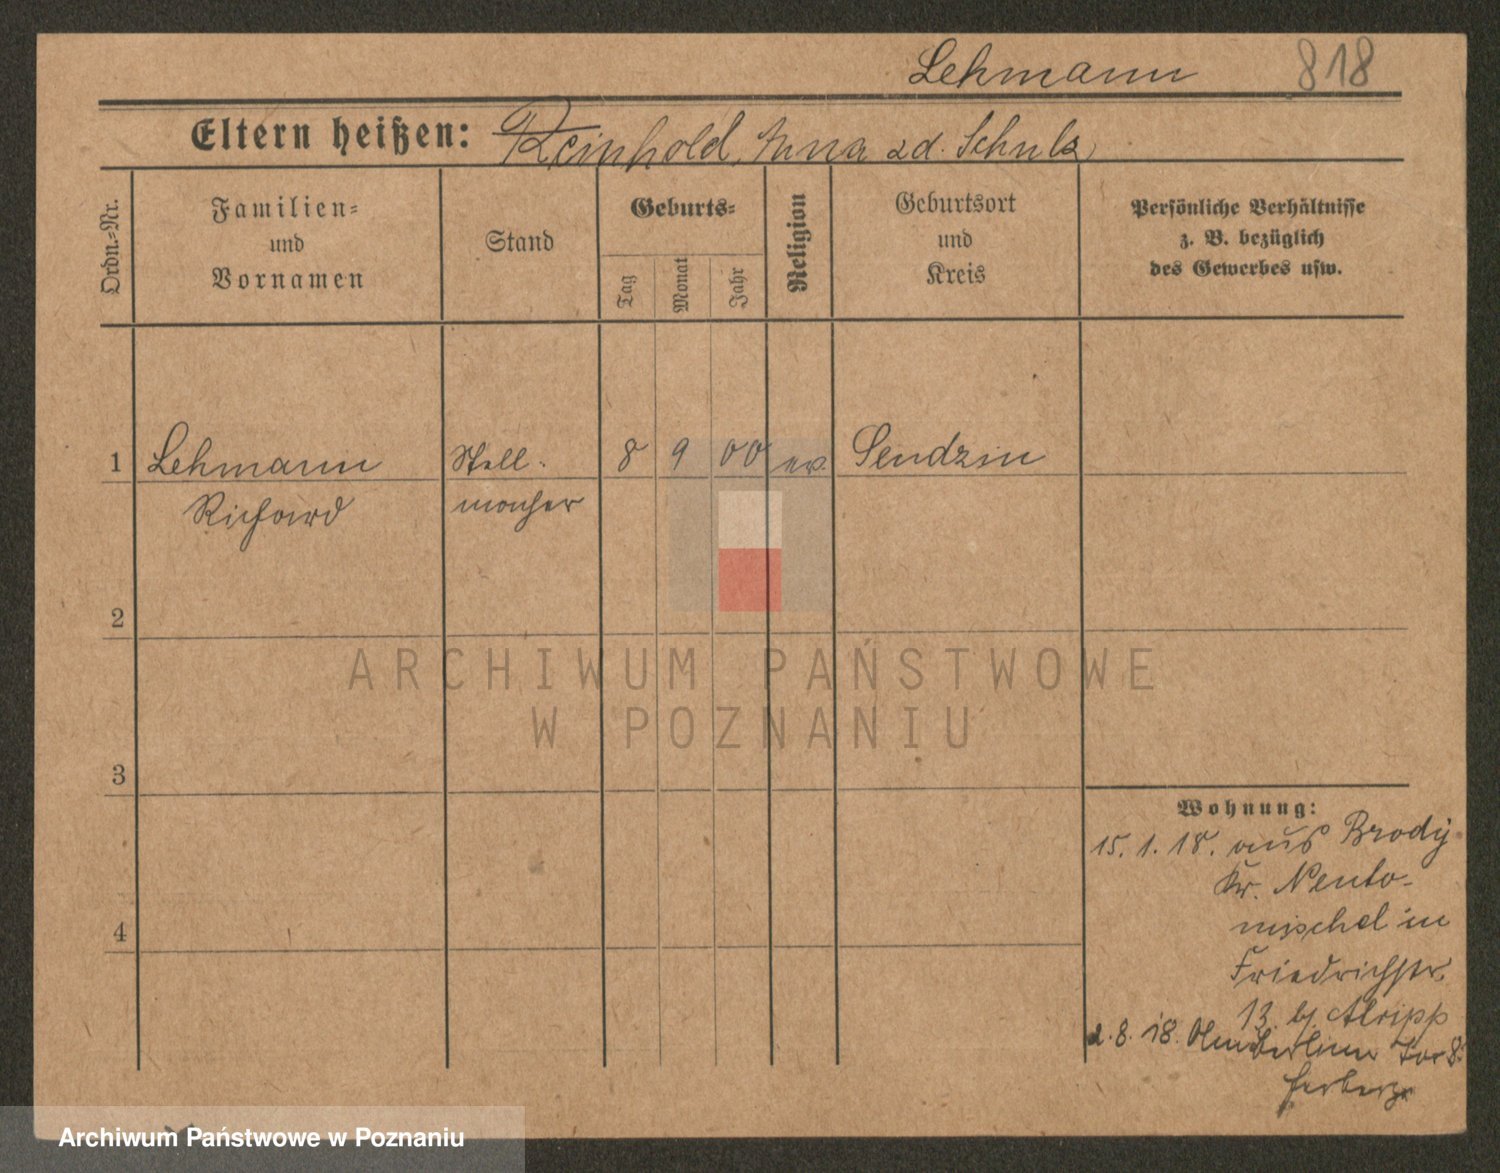 Lehmann 818
Eltern heißen: Reinhold, Anna
Ordn.-Nr.
Familien-
und
Vornamen
Stand
Geburts-
Tag
Monat
Jahr
Religion
Geburtsort
und
Kreis
Persönliche Verhältnisse
z. B. bezüglich
des Gewerbes usw.
1 Lehmann Stell- 8 9 00 ev. Sendzin
Richard macher
2
ARCHIWUM PAŃSTWOWE
W POZNANIU
3
Wohnung:
15. 1. 18. aus Brody
Kr. Neuto-
mischel in
Friedrichstr.
13. b/
4
8. 18.
Archiwum Państwowe w Poznaniu